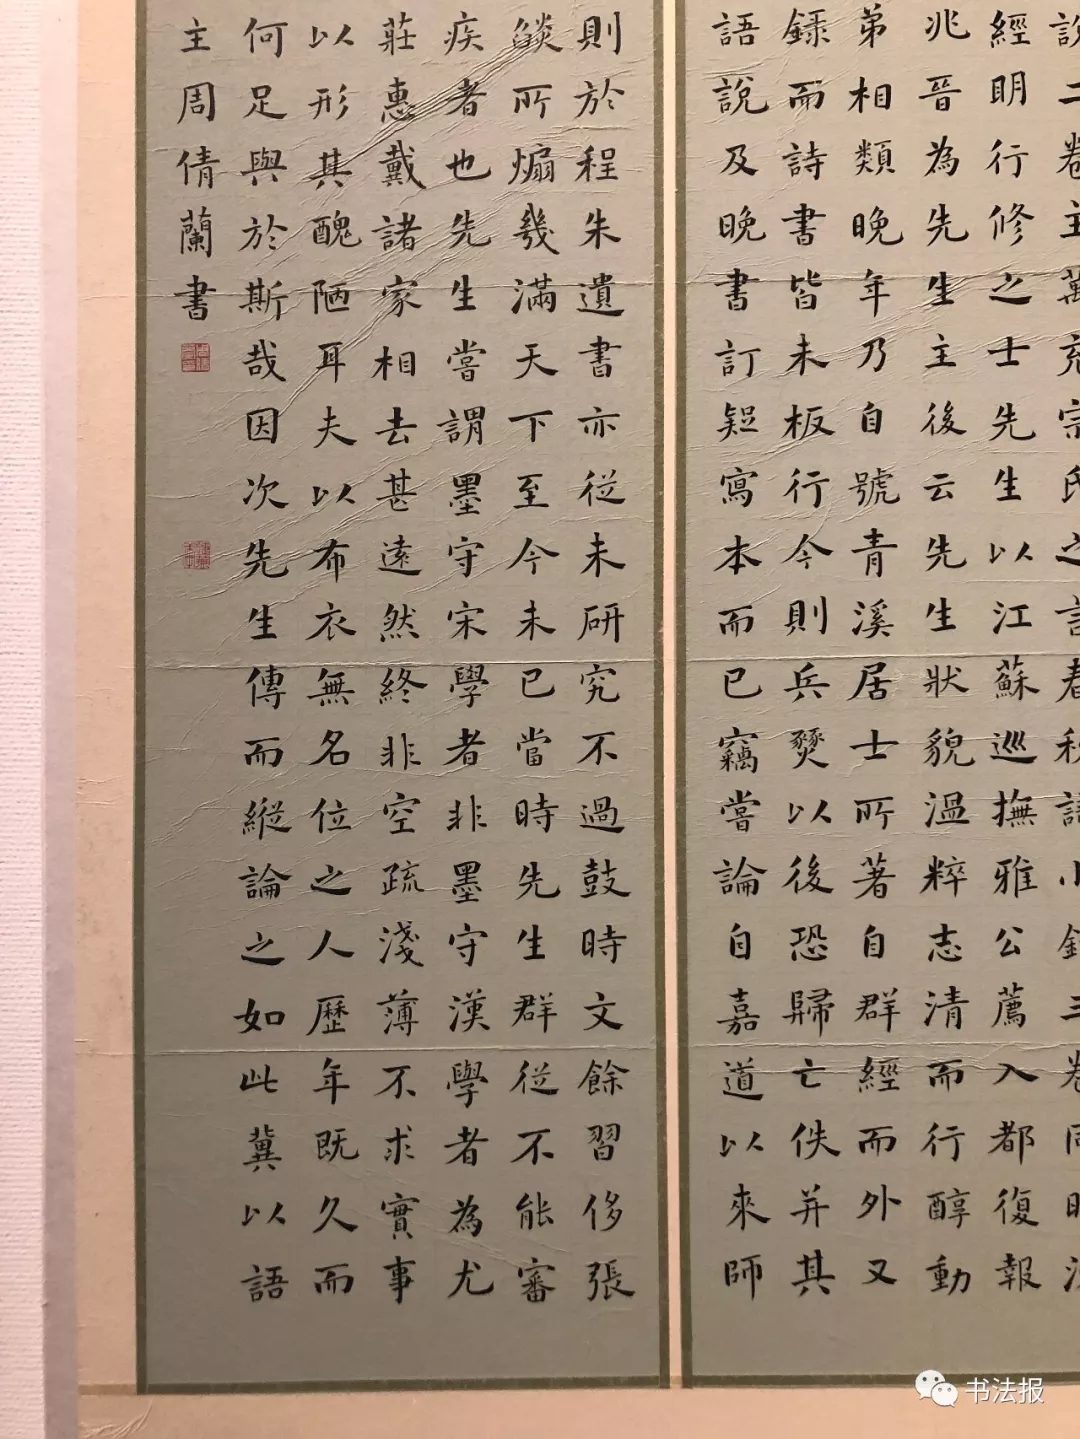 說二卷主萬充宗氏之言春秋語小錄三卷同時法
經明行修之士先生以江蘇巡撫雅公薦入都復報
兆晉為先生主後云先生狀貌溫粹志清而行醇動
弟相類晚年乃自號青溪居士所著自群經而外又
錄而詩書皆未板行今則兵燹以後恐歸亡佚并其
語說及晚書訂疑寫本而已竊嘗論自嘉道以來師
則於程朱遺書亦從未研究不過鼓時文餘習侈張
燄所煽幾滿天下至今未已當時先生群從不能審
疾者也先生嘗謂墨守宋學者非墨守漢學者為尤
莊惠戴諸家相去甚遠然終非空疏淺薄不求實事
以形其醜陋耳夫以布衣無名位之人歷年既久而
何足與於斯哉因次先生傳而縱論之如此冀以語
主周倩蘭書
书法报